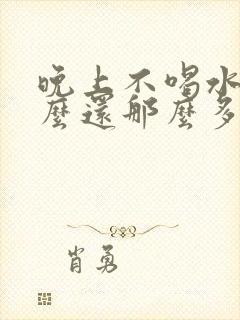 晚上不喝水
麼還那麼多
肖勇